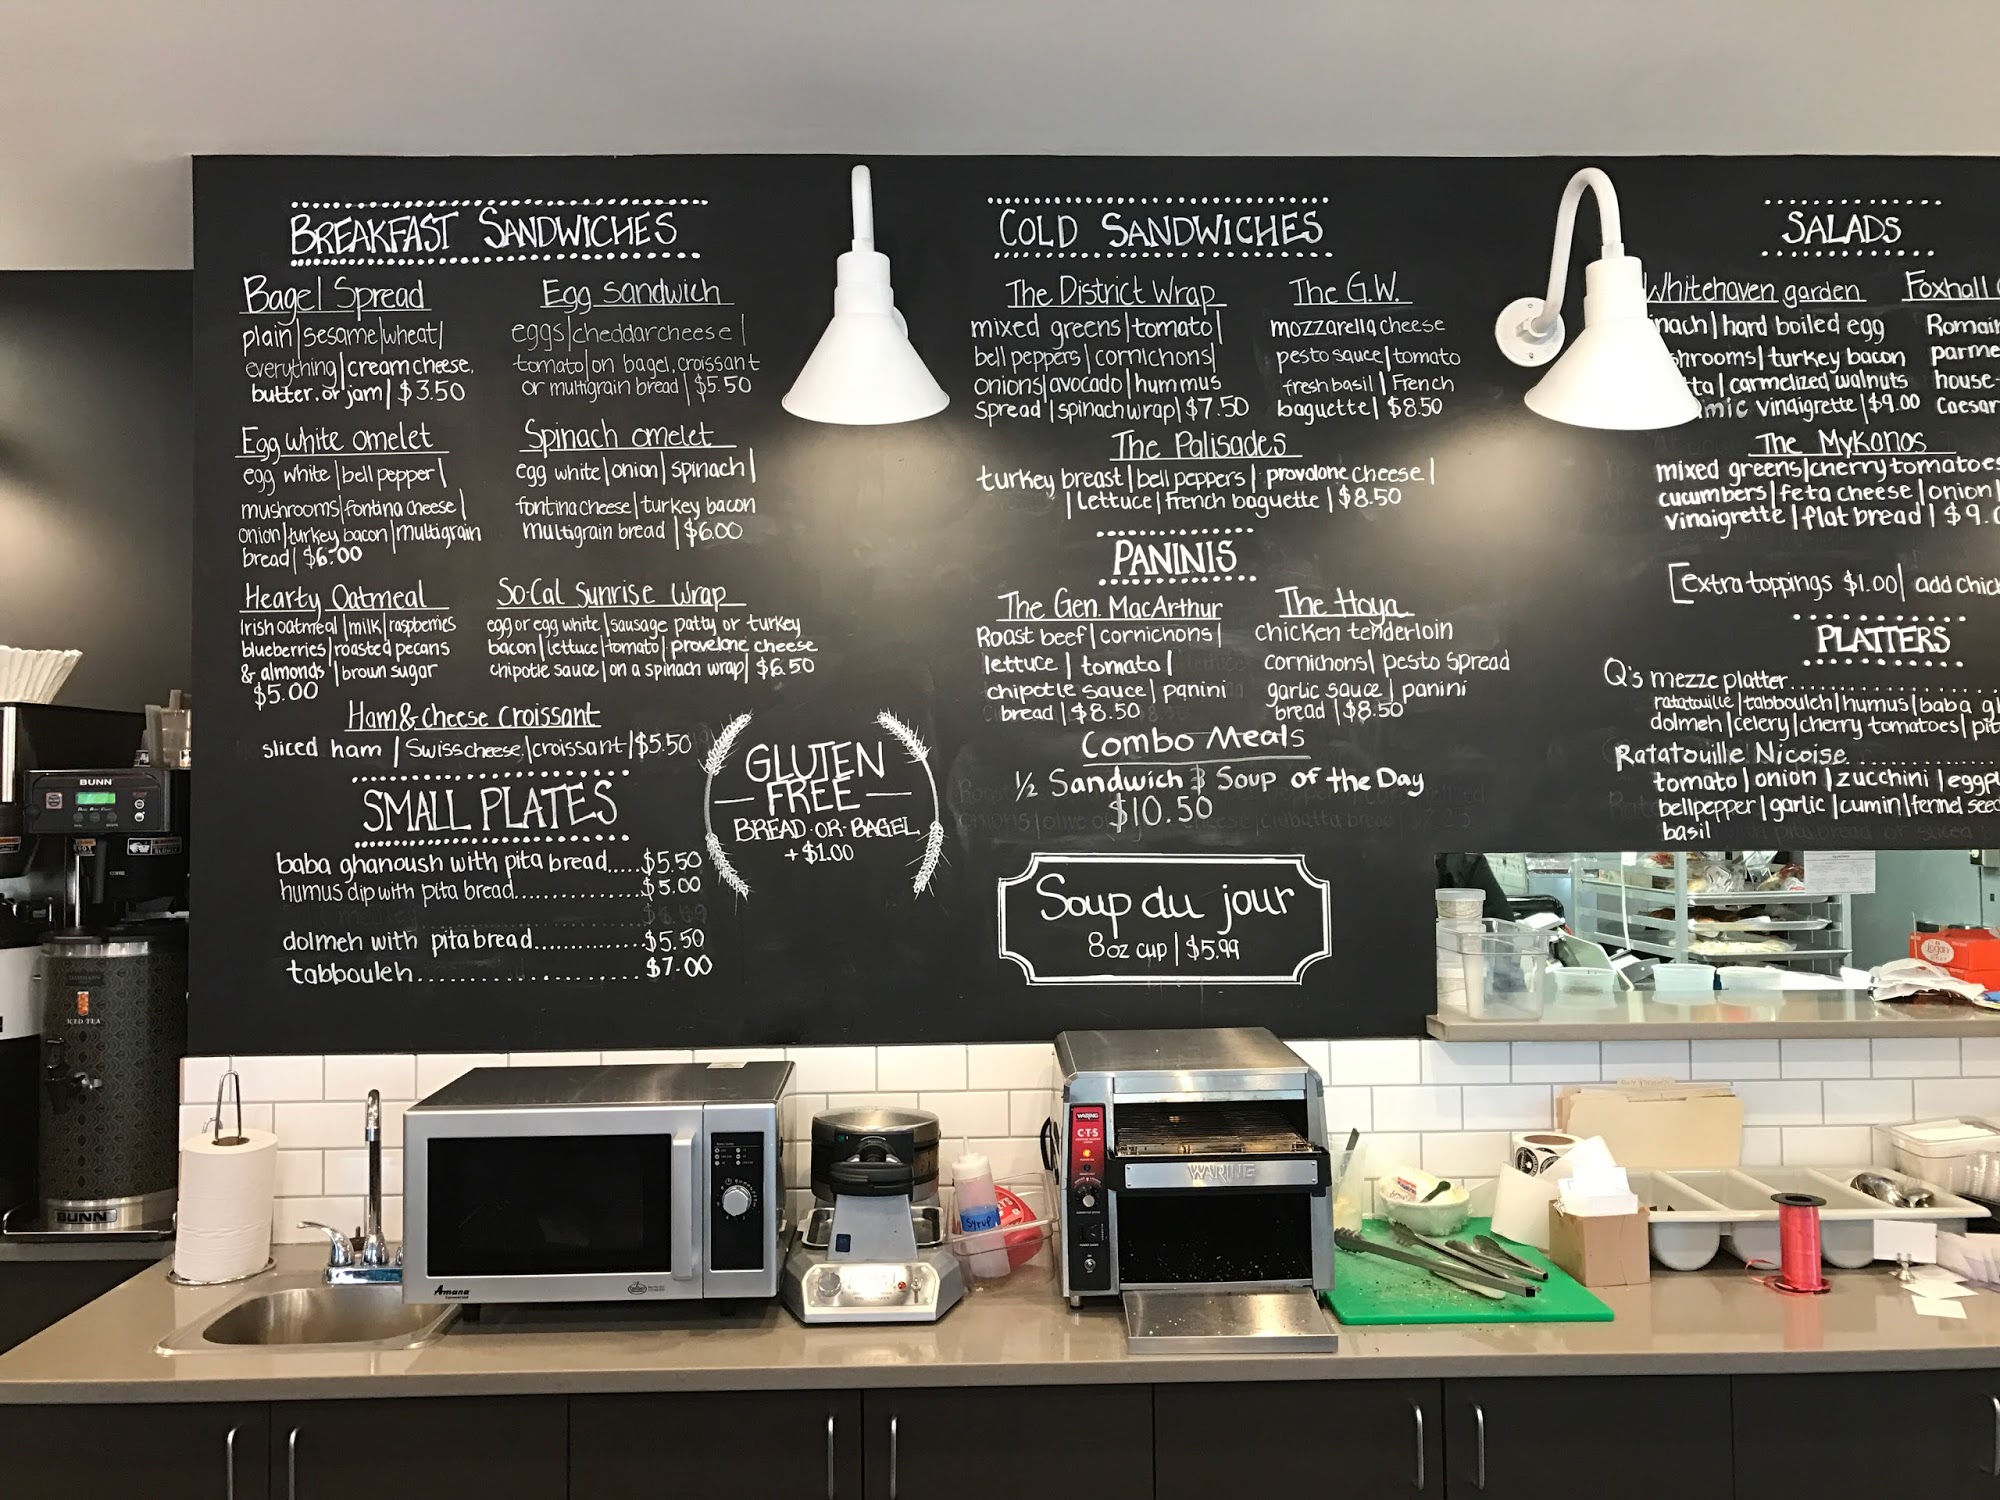 BREAKFAST SANDWICHES
Bagel Spread
plain|sesame|wheat|
everything|cream cheese,
butter, or jam|$3.50
Egg Sandwich
eggs|cheddarcheese|
tomato|on bagel, croissant
or multigrain bread|$5.50
Egg white omelet
egg white|bell pepper|
mushrooms|fontina cheese|
onion|turkey bacon|multigrain
bread|$6.00
Spinach omelet
egg white|onion|spinach|
fontina cheese|turkey bacon
multigrain bread|$6.00
Hearty Oatmeal
Irish oatmeal|milk|raspberries
blueberries|roasted pecans
& almonds|brown sugar
$5.00
So-Cal Sunrise Wrap
egg or egg white|sausage patty or turkey
bacon|lettuce|tomato|provelone cheese
chipotle sauce|on a spinach wrap|$6.50
Ham & Cheese Croissant
sliced ham|Swiss cheese|croissant|$5.50
SMALL PLATES
baba ghanoush with pita bread.....$5.50
humus dip with pita bread..............$5.00
dolmeh with pita bread..............$5.50
tabbouleh.......................$7.00
GLUTEN
FREE
BREAD·OR·BAGEL
+$1.00
COLD SANDWICHES
The District Wrap
mixed greens|tomato|
bell peppers|cornichons|
onions|avocado|hummus
spread|spinach wrap|$7.50
The G.W.
mozzarella cheese
pesto sauce|tomato
fresh basil|French
baguette|$8.50
The Palisades
turkey breast|bell peppers|provalone cheese|
|lettuce|french baguette|$8.50
PANINIS
The Gen. MacArthur
Roast beef|cornichons|
lettuce|tomato|
chipotle sauce|panini
bread|$8.50
The Hoya
chicken tenderloin
cornichons|pesto spread
garlic sauce|panini
bread|$8.50
Combo Meals
1/2 Sandwich & Soup of the Day
$10.50
Soup du jour
8oz cup|$5.99
SALADS
Whitehaven garden
nach|hard boiled egg
shrooms|turkey bacon
tta|carmelized walnuts
amic vinaigrette|$9.00
Foxhall
Romain
parme
house-
Caesar
The Mykonos
mixed greens|cherry tomatoes
cucumbers|feta cheese|onion|
vinaigrette|flat bread|$9.
[extra toppings $1.00|add chic
PLATTERS
Q's mezze platter
ratatouille|tabbouleh|humus|baba g
dolmeh|celery|cherry tomatoes|pit
Ratatouille Nicoise
tomato|onion|zucchini|eggpl
bellpepper|garlic|cumin|fennel seed
basil
BUNN
ICED TEA
BUNN
Amana
syrup
WARING
CTS
WARING